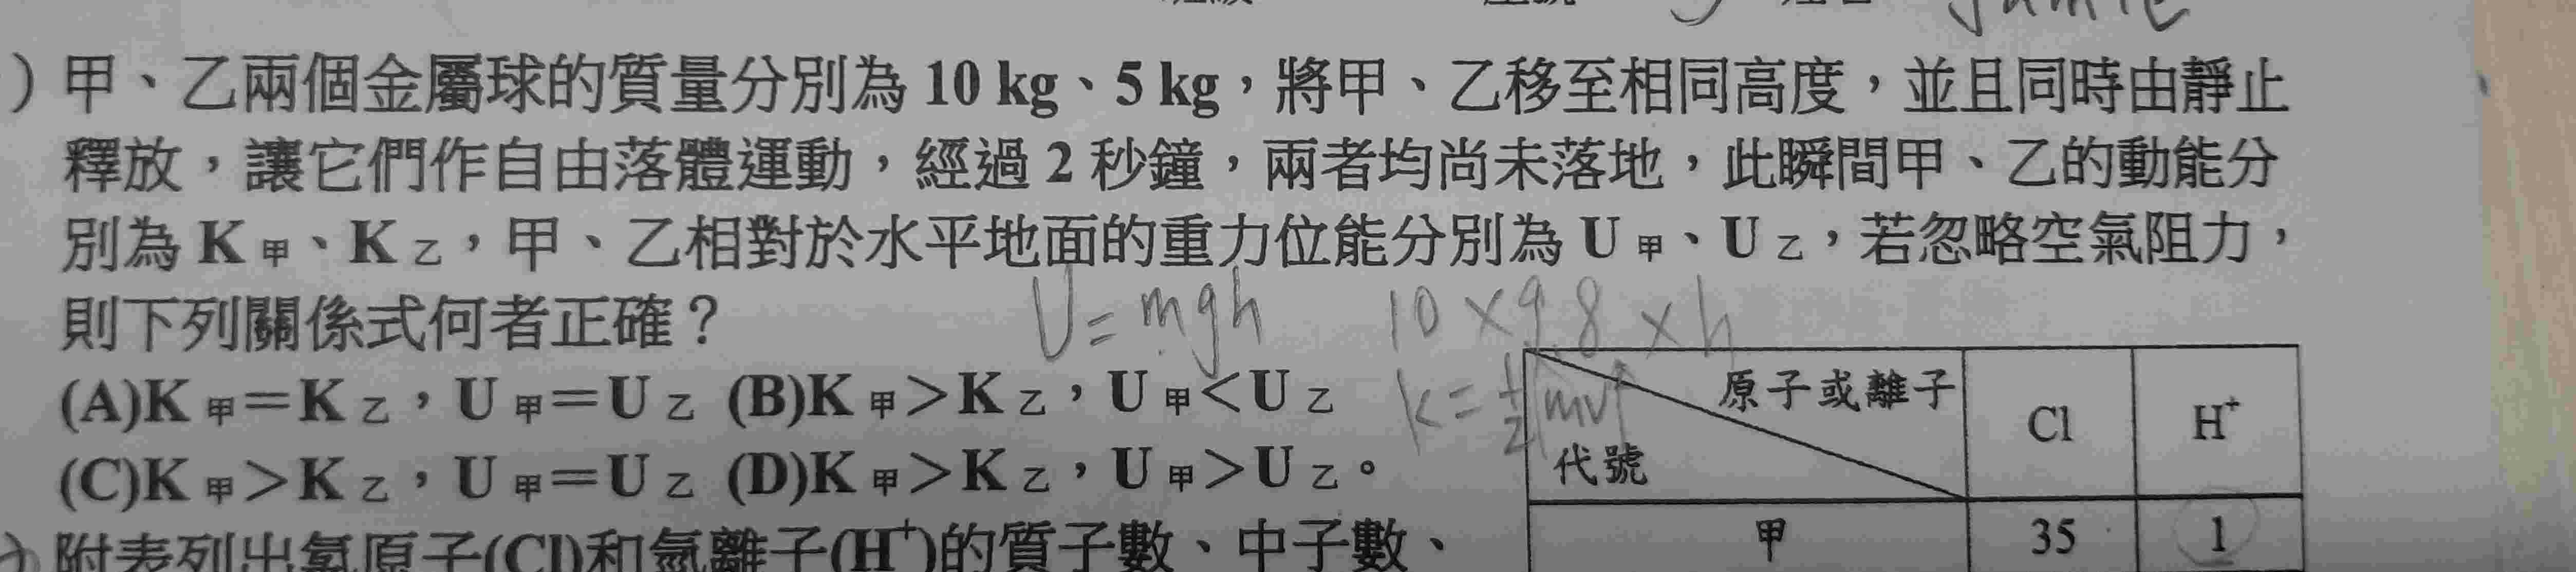 )甲、乙兩個金屬球的質量分別為 10 kg、5 kg，將甲、乙移至相同高度，並且同時由靜止
釋放，讓它們作自由落體運動，經過 2 秒鐘，兩者均尚未落地，此瞬間甲、乙的動能分
別為 K甲、K乙，甲、乙相對於水平地面的重力位能分別為 U甲、U乙，若忽略空氣阻力，
則下列關係式何者正確？
U=mgh 10×9.8×h
(A)K甲＝K乙，U甲＝U乙 (B)K甲＞K乙，U甲＜U乙
(C)K甲＞K乙，U甲＝U乙 (D)K甲＞K乙，U甲＞U乙。
K=½mv²
原子或離子 Cl H⁺
代號
甲 35 1
附表列出氯原子(Cl)和氫離子(H⁺)的質子數、中子數、